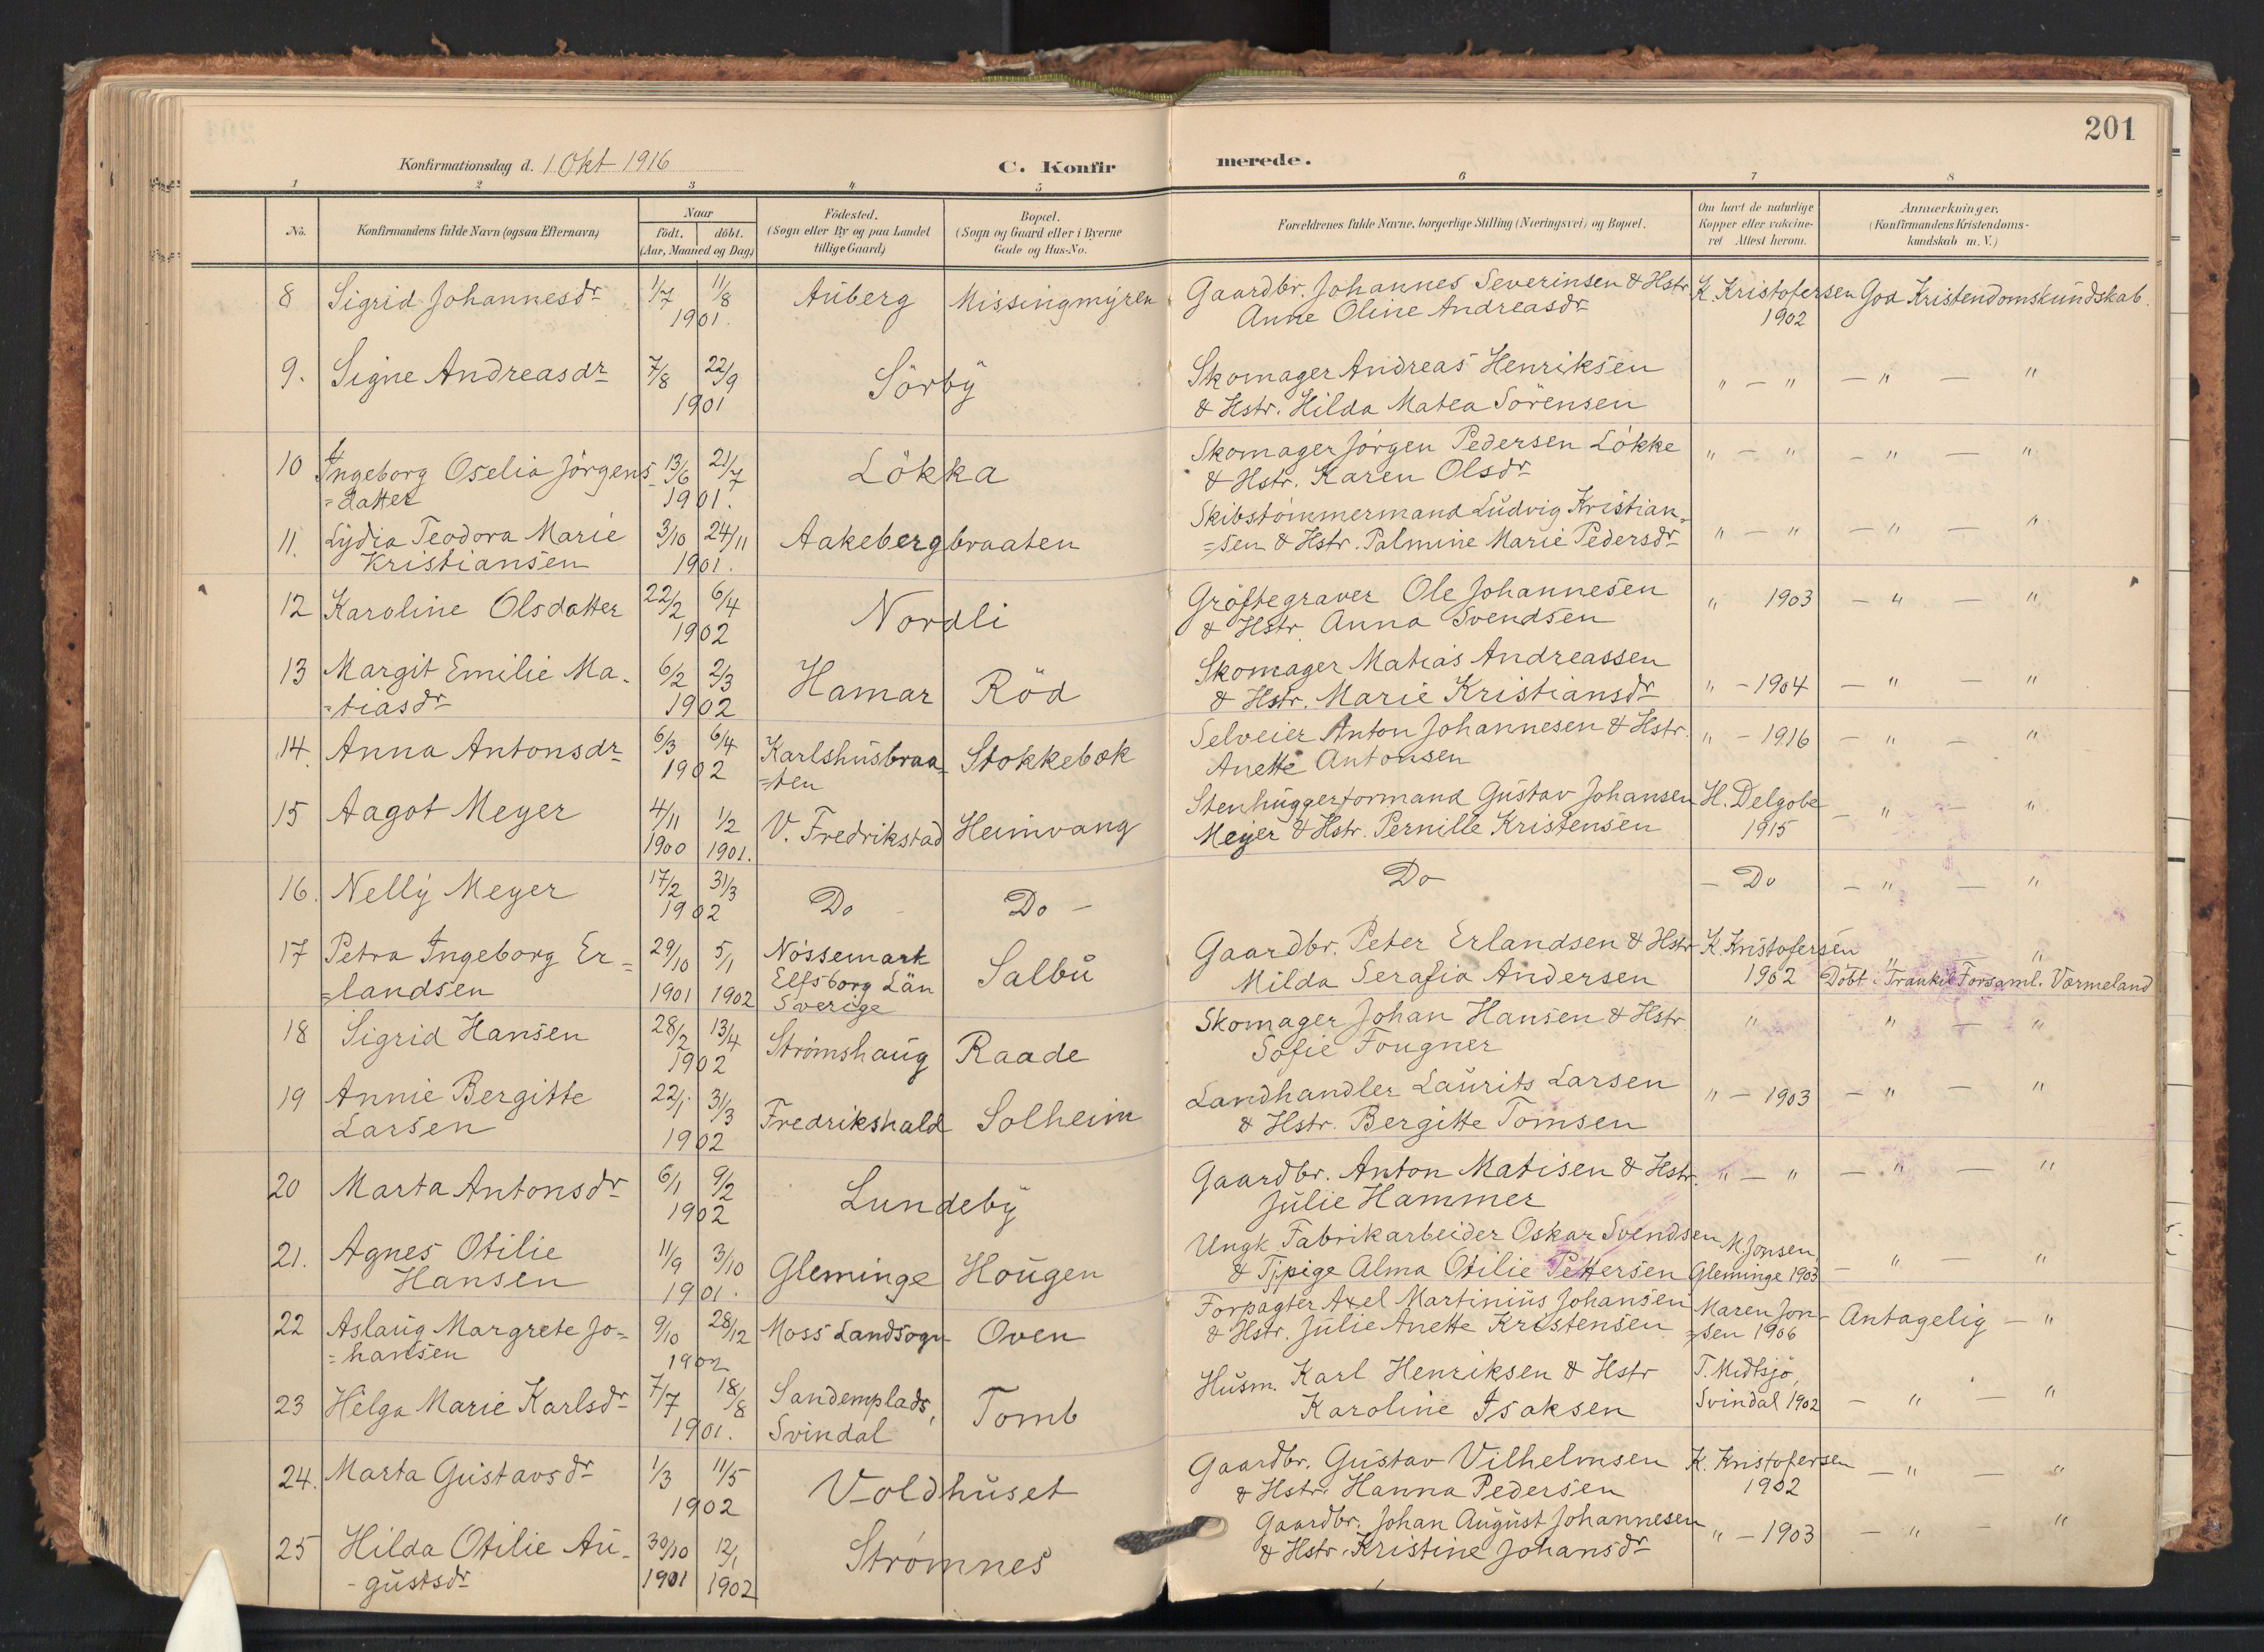 201
Konfirmationsdag d. 1 Okt 1916 C. Konfirmerede.
1 2 3 4 5 6 7 8
No. Konfirmandens fulde Navn (ogsaa Efternavn) Naar födt. döbt. (Aar, Maaned og Dag) Födested. (Sogn eller By og paa Landet tillige Gaard) Bopæl. (Sogn og Gaard eller i Byerne Gade og Hus-No. Forældrenes fulde Navne, borgerlige Stilling (Næringsvei) og Bopæl. Om havt de naturlige Kopper eller vakcineret Attest herom. Anmærkninger. (Konfirmandens Kristendomskundskab m. V.)
8 Sigrid Johannesdr 1/7 11/8 Auberg Missingmyren Gaardbr. Johannes Severinsen & Hstr K. Kristofersen God Kristendomskundskab.
1901. Anne Oline Andreasdr 1902
9. Signe Andreasdr 7/8 22/9 Sörby Skomager Andreas Henriksen " — " — " — "
1901 & Hstr. Hilda Matea Sörensen
10 Ingeborg Oselia Jörgens- 13/6 21/7 Lökka Skomager Jörgen Pedersen Lökke " — " — " — "
=datter 1901. & Hstr. Karen Olsdr
11. Lydia Teodora Marie 3/10 24/11 Aakebergbraaten Skibstömmermand Ludvig Kristian= " — " — " — "
Kristiansen 1901. =sen & Hstr. Palmine Marie Pedersdr
12 Karoline Olsdatter 22/2 6/4 Nordli Gröftegraver Ole Johannesen " 1903 — " — "
1902 & Hstr. Anna Svendsen
13 Margit Emilie Ma- 6/2 2/3 Hamar Röd Skomager Matias Andreassen
=tiasdr 1902 & Hstr. Marie Kristiansdr " — 1904 — " — "
14. Anna Antonsdr 6/3 6/4 Karlshusbraa- Stokkebæk Selveier Anton Johannesen & Hstr. " — 1916 — " — "
1902 =ten Anette Antonsen
15 Aagot Meyer 4/11 1/2 V. Fredrikstad Heimvang Stenhuggerformand Gustav Johansen H. Delgobe — " — "
1900 1901. Meyer & Hstr. Pernille Kristensen 1915
16. Nelly Meyer 17/2 31/3 Do — Do — Do — Do — " — "
1902
17 Petra Ingeborg Er= 29/10 5/1 Nössemark Salbu Gaardbr. Peter Erlandsen & Hstr K. Kristofersen " — "
=landsen 1901 1902 Elfsborg Län Milda Serafia Andersen 1902 Döbt i Trankil Forsaml. Værmeland
Sverige
18 Sigrid Hansen 28/2 13/4 Strømshaug Raade Skomager Johan Hansen & Hstr. " " — "
1902 Sofie Fougner
19 Annie Bergitte 22/1 31/3 Fredrikshald Solheim Landhandler Laurits Larsen " — 1903 — " — "
Larsen 1902 & Hstr. Bergitte Tomsen
20 Marta Antonsdr 6/1 9/2 Lundeby Gaardbr. Anton Matisen & Hstr. " — " — " — "
1902 Julie Hammer
21. Agnes Otilie 11/9 3/10 Gleminge Hougen Ungk. Fabrikarbeider Oskar Svendsen M. Jonsen
Hansen 1901. & Tjpige Alma Otilie Pettersen Gleminge 1903 — " — "
22 Aslaug Margrete Jo= 9/10 28/12 Moss Landsogn Oven Forpagter Axel Martinius Johansen Maren Jon- Antagelig — "
=hansen 1902 & Hstr. Julie Anette Kristensen =sen 1906
23 Helga Marie Karlsdr 7/7 18/8 Sandemplads, Tomb Husm. Karl Henriksen & Hstr T. Midtsjö,
1901. Svindal Karoline Isaksen Svindal 1902 — " — "
24. Marta Gustavsdr 1/3 11/5 Voldhuset Gaardbr. Gustav Vilhelmsen K. Kristofersen — " — "
1902 & Hstr. Hanna Pedersen 1902
25 Hilda Otilie Au- 30/10 12/1 Strømnes Gaardbr. Johan August Johannesen " — 1903 — " — "
-gustsdr 1901 1902 & Hstr. Kristine Johansdr